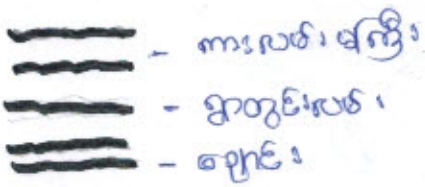 - ကားလမ်းမကြီး
- ရွာတွင်းလမ်း
- ချောင်း